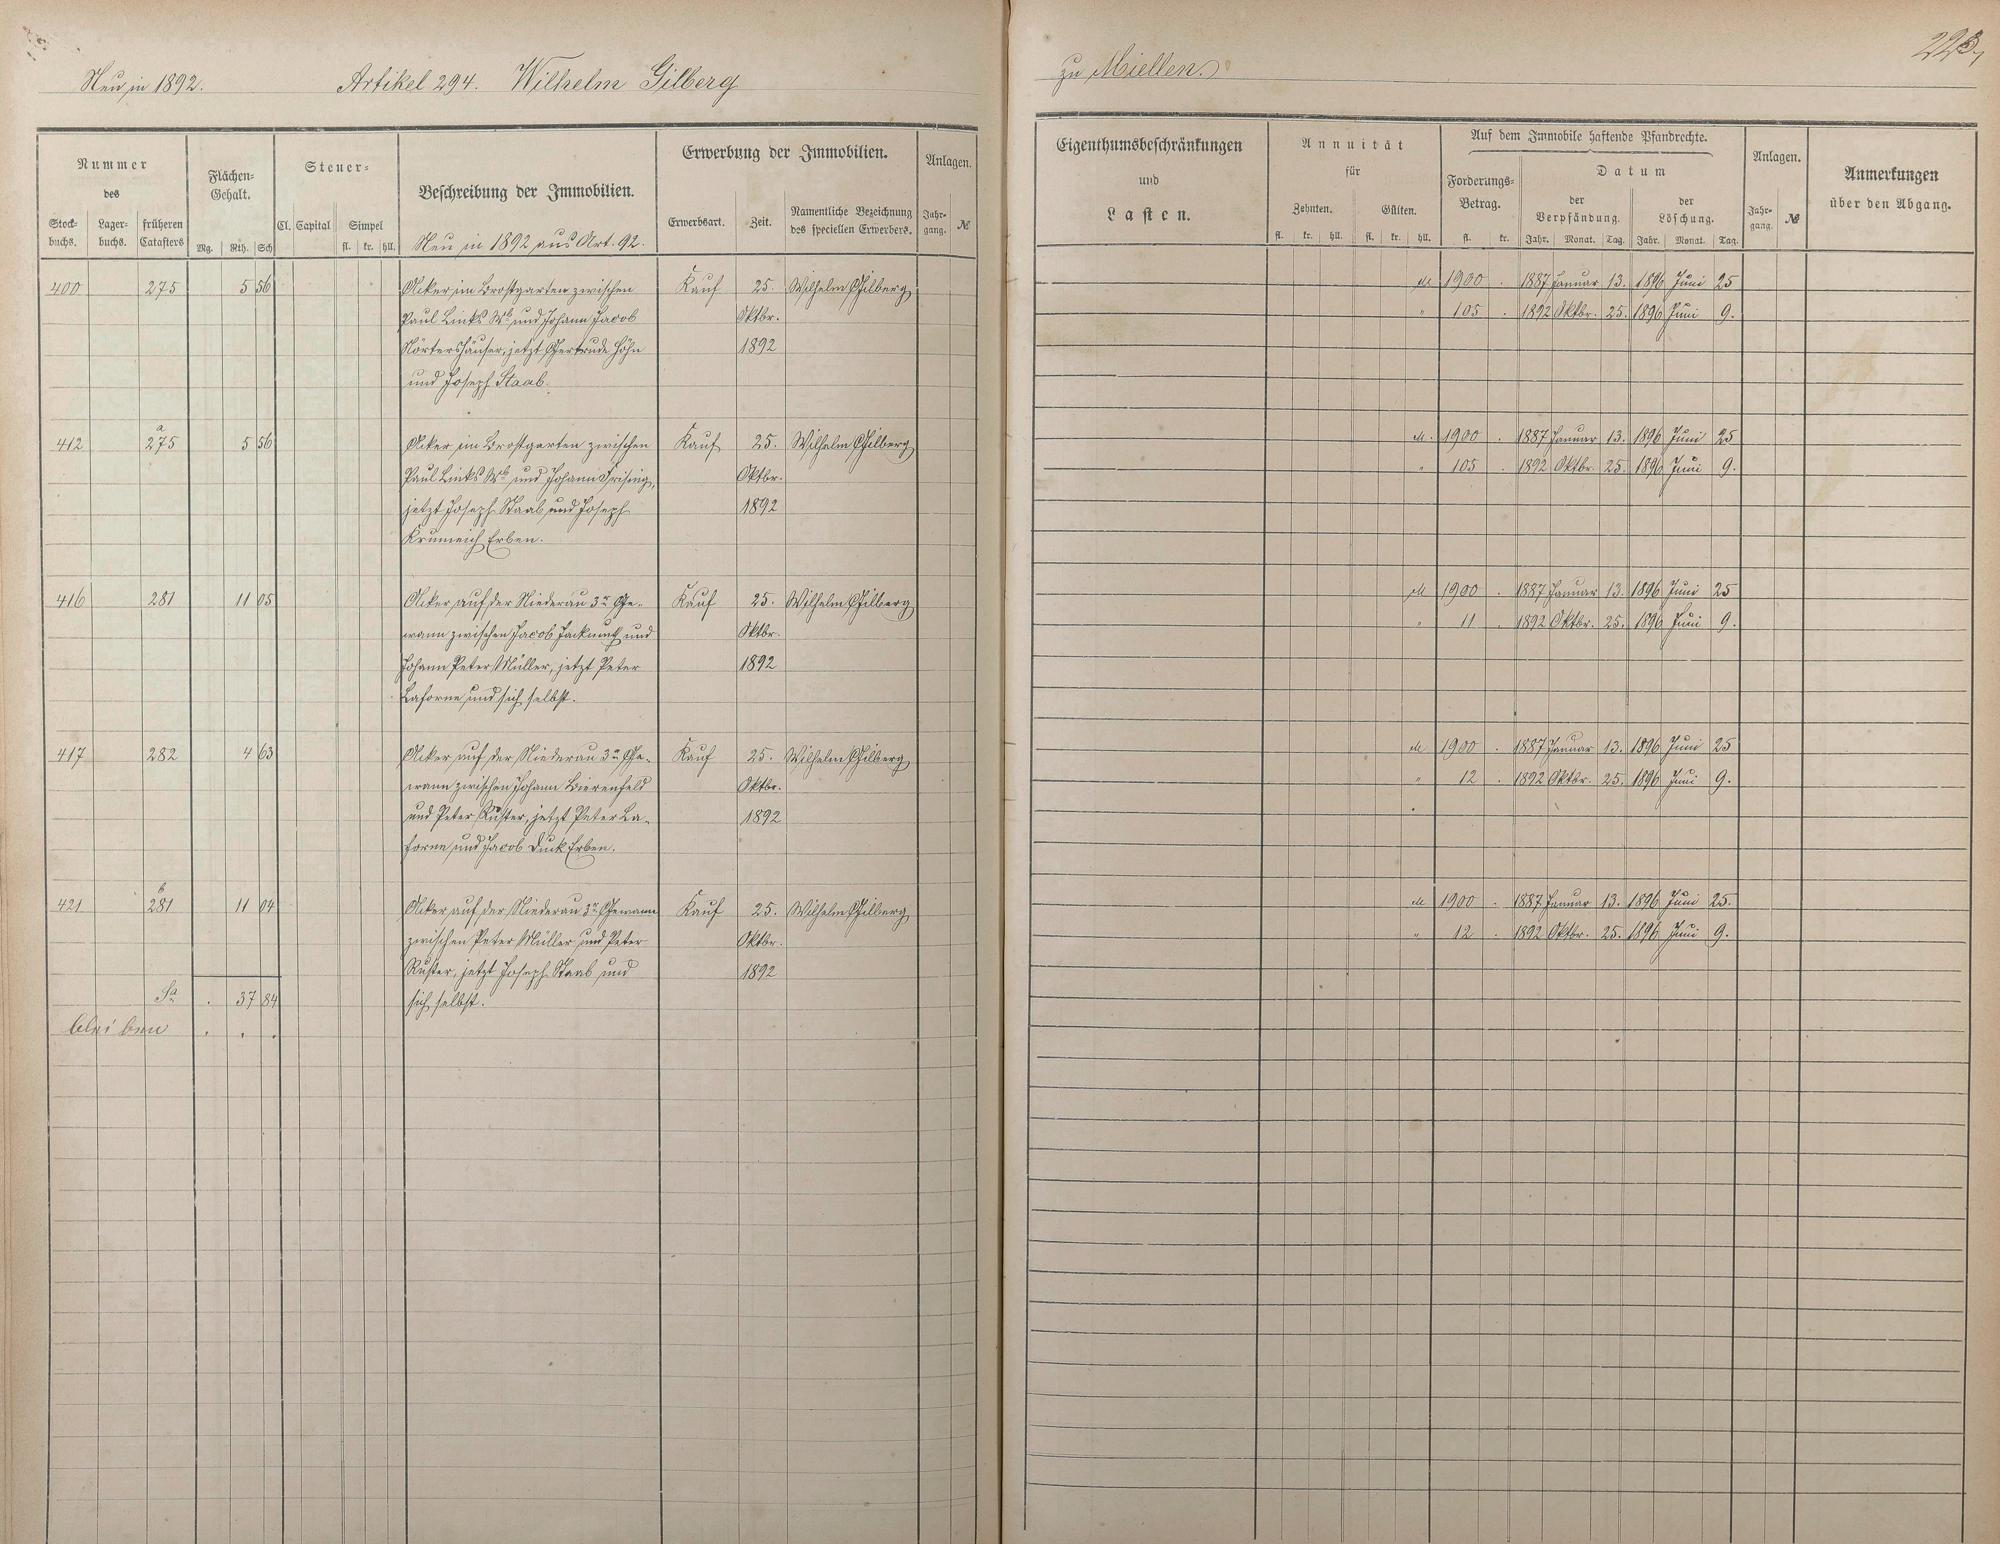 Neu in 1892. Artikel 294. Wilhelm Gilberg
zu Miellen.
Nummer
des
Stock-
buchs.
Lager-
buchs.
früheren
Catasters
Flächen-
Gehalt.
Mg. Rth. Sch
Steuer-
Cl. Capital Simpel
fl. kr. hll.
Beschreibung der Immobilien.
Neu in 1892 aus Art. 92.
Erwerbung der Immobilien.
Erwerbsart. Zeit.
Namentliche Bezeichnung
des speciellen Erwerbers.
Anlagen.
Jahr-
gang. №
400 275 5 56 Acker im Brostgarten zwischen Kauf 25. Wilhelm Gilberg
Paul Links Wb und Johann Jacob Oktbr.
Nörtershäuser, jetzt Gertrude Höhn 1892
und Joseph Staab.
a
412 275 5 56 Acker im Brostgarten zwischen Kauf 25. Wilhelm Gilberg
Paul Links Wb und Johann Frising, Oktbr.
jetzt Joseph Staab und Joseph 1892
Krumeich Erben.
416 281 11 05 Acker auf der Niederau 3r Ge- Kauf 25. Wilhelm Gilberg
wann zwischen Jacob und Oktbr.
Johann Peter Müller, jetzt Peter 1892
Laforne und sich selbst.
417 282 4 63 Acker auf der Niederau 3r Ge- Kauf 25. Wilhelm Gilberg
wann zwischen Johann Bierenfeld Oktbr.
und Peter Ruster, jetzt Peter La- 1892
forne und Jacob Duck Erben.
b
421 281 11 04 Acker auf der Niederau 3r Gewann Kauf 25. Wilhelm Gilberg
zwischen Peter Müller und Peter Oktbr.
Ruster, jetzt Joseph Staab und 1892
Sa . 37 84 sich selbst.
bleiben . . .
Eigenthumsbeschränkungen
und
Lasten.
Annuität
für
Zehnten. Gülten.
fl. kr. hll. fl. kr. hll.
Auf dem Immobile haftende Pfandrechte.
Forderungs-
Betrag.
fl. kr.
Datum
der
Verpfändung.
Jahr. Monat. Tag.
der
Löschung.
Jahr. Monat. Tag.
Anlagen.
Jahr-
gang. №
Anmerkungen
über den Abgang.
M 1900 . 1887 Januar 13. 1896 Juni 25
" 105 . 1892 Oktbr. 25. 1896 Juni 9.
M. 1900 . 1887 Januar 13. 1896 Juni 25
" 105 . 1892 Oktbr. 25. 1896 Juni 9.
M 1900 . 1887 Januar 13. 1896 Juni 25
" 11 . 1892 Oktbr. 25. 1896 Juni 9.
M 1900 . 1887 Januar 13. 1896 Juni 25
" 12 . 1892 Oktbr. 25. 1896 Juni 9.
M 1900 . 1887 Januar 13. 1896 Juni 25.
" 12 . 1892 Oktbr. 25. 1896 Juni 9.